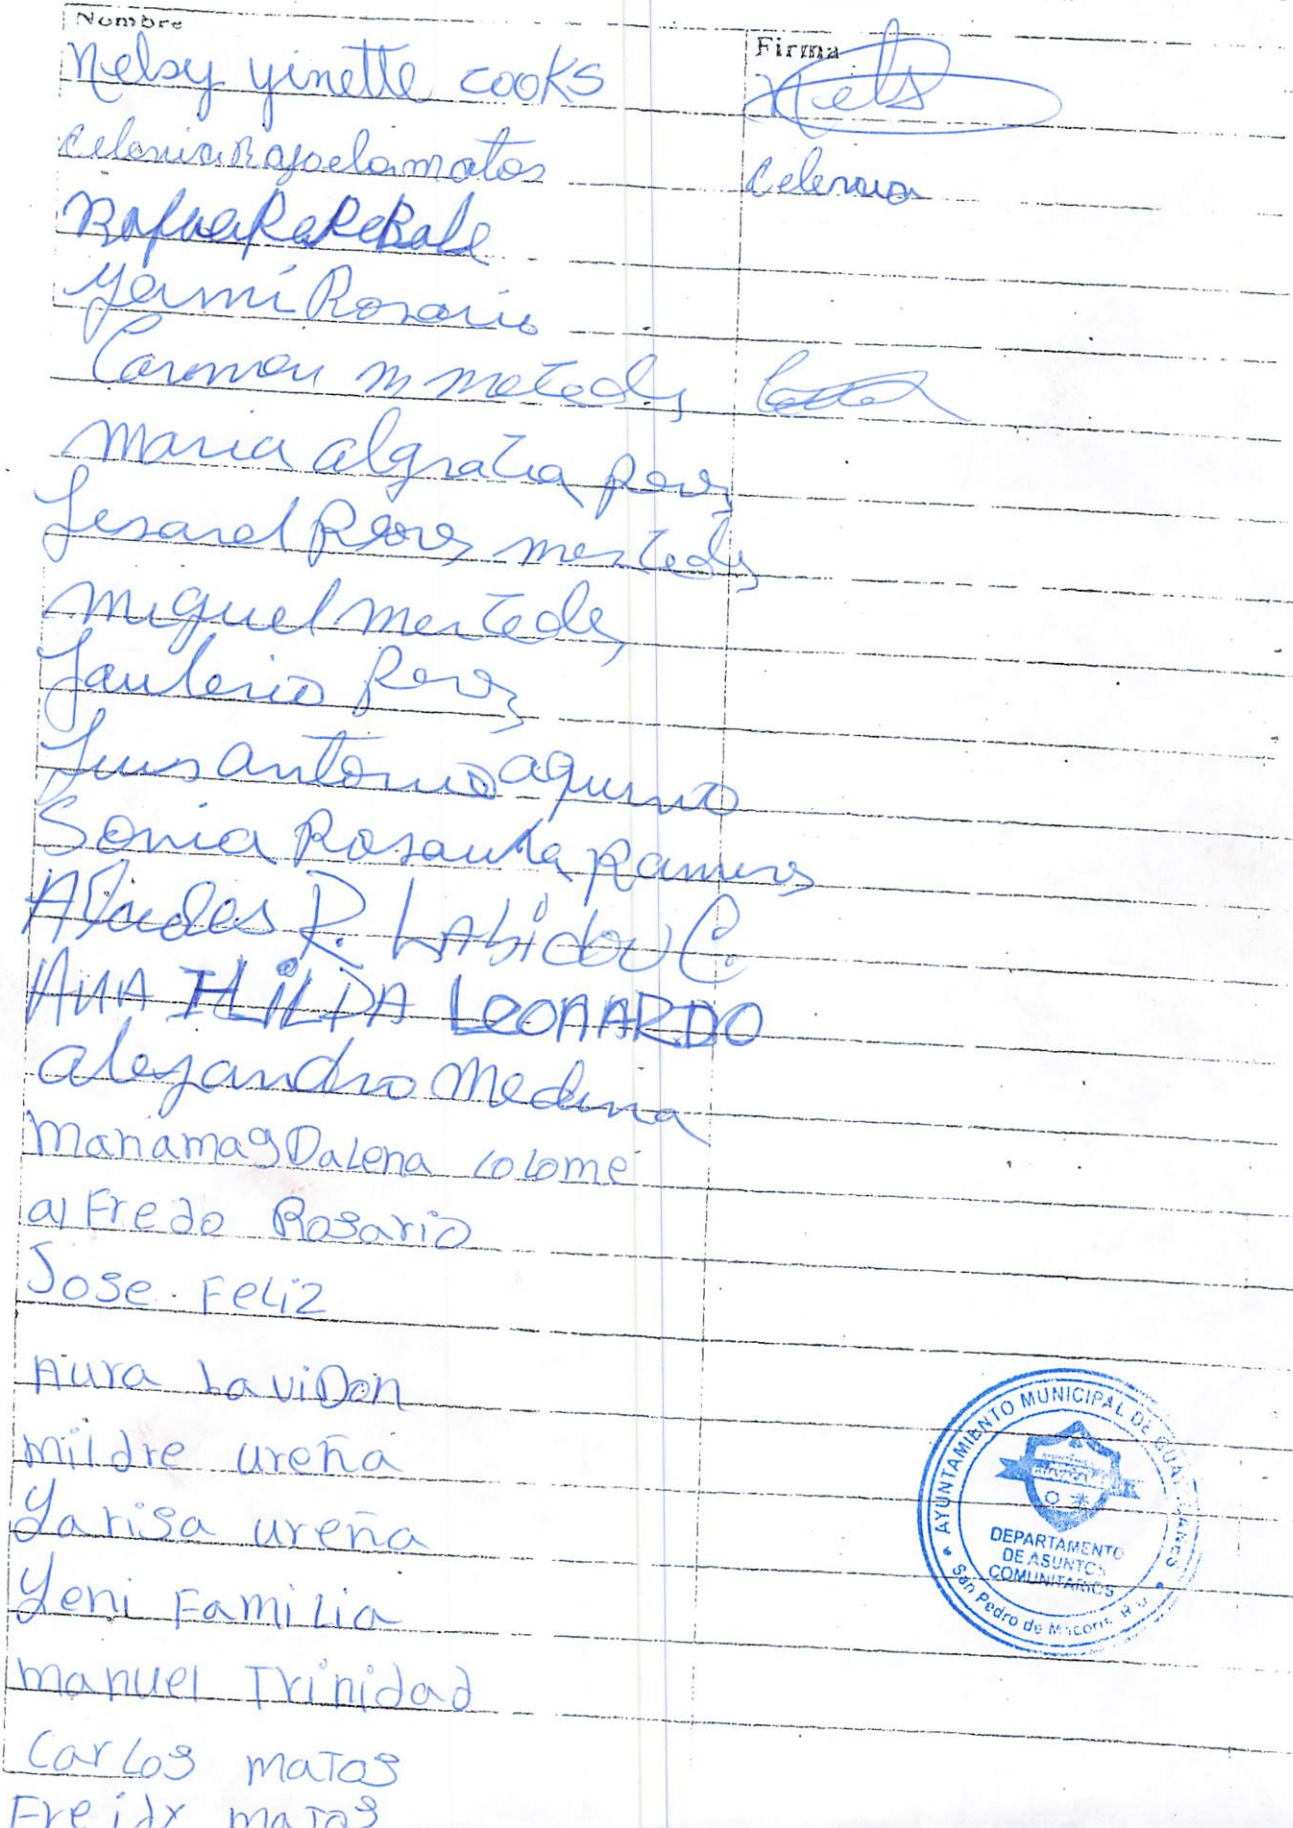 Nombre
Firma
Nelsy yinette cooks
Nels
celenia Rafaela matos
Celenia
Yermi Rosario
Carmen m mercedes
maria algracia perez
Jesarel Perez mercedes
miguel mercedes
Jauterio Perez
Luis antonio aquino
Sonia Rosaura Ramires
R. LAbidou C.
AnA ILILDA LeonARDO
alejandro medina
mariamagDaLena coLome
alFredo Rosario
Jose. FeLiz
Aura LaviDon
mildre ureña
Yarisa ureña
Yeni FamiLia
manuel Trinidad
CarLos maTos
Freidy maTos
AYUNTAMIENTO MUNICIPAL DE GUAYACANES
DEPARTAMENTO
DE ASUNTOS
COMUNITARIOS
San Pedro de Macorís, R.D.